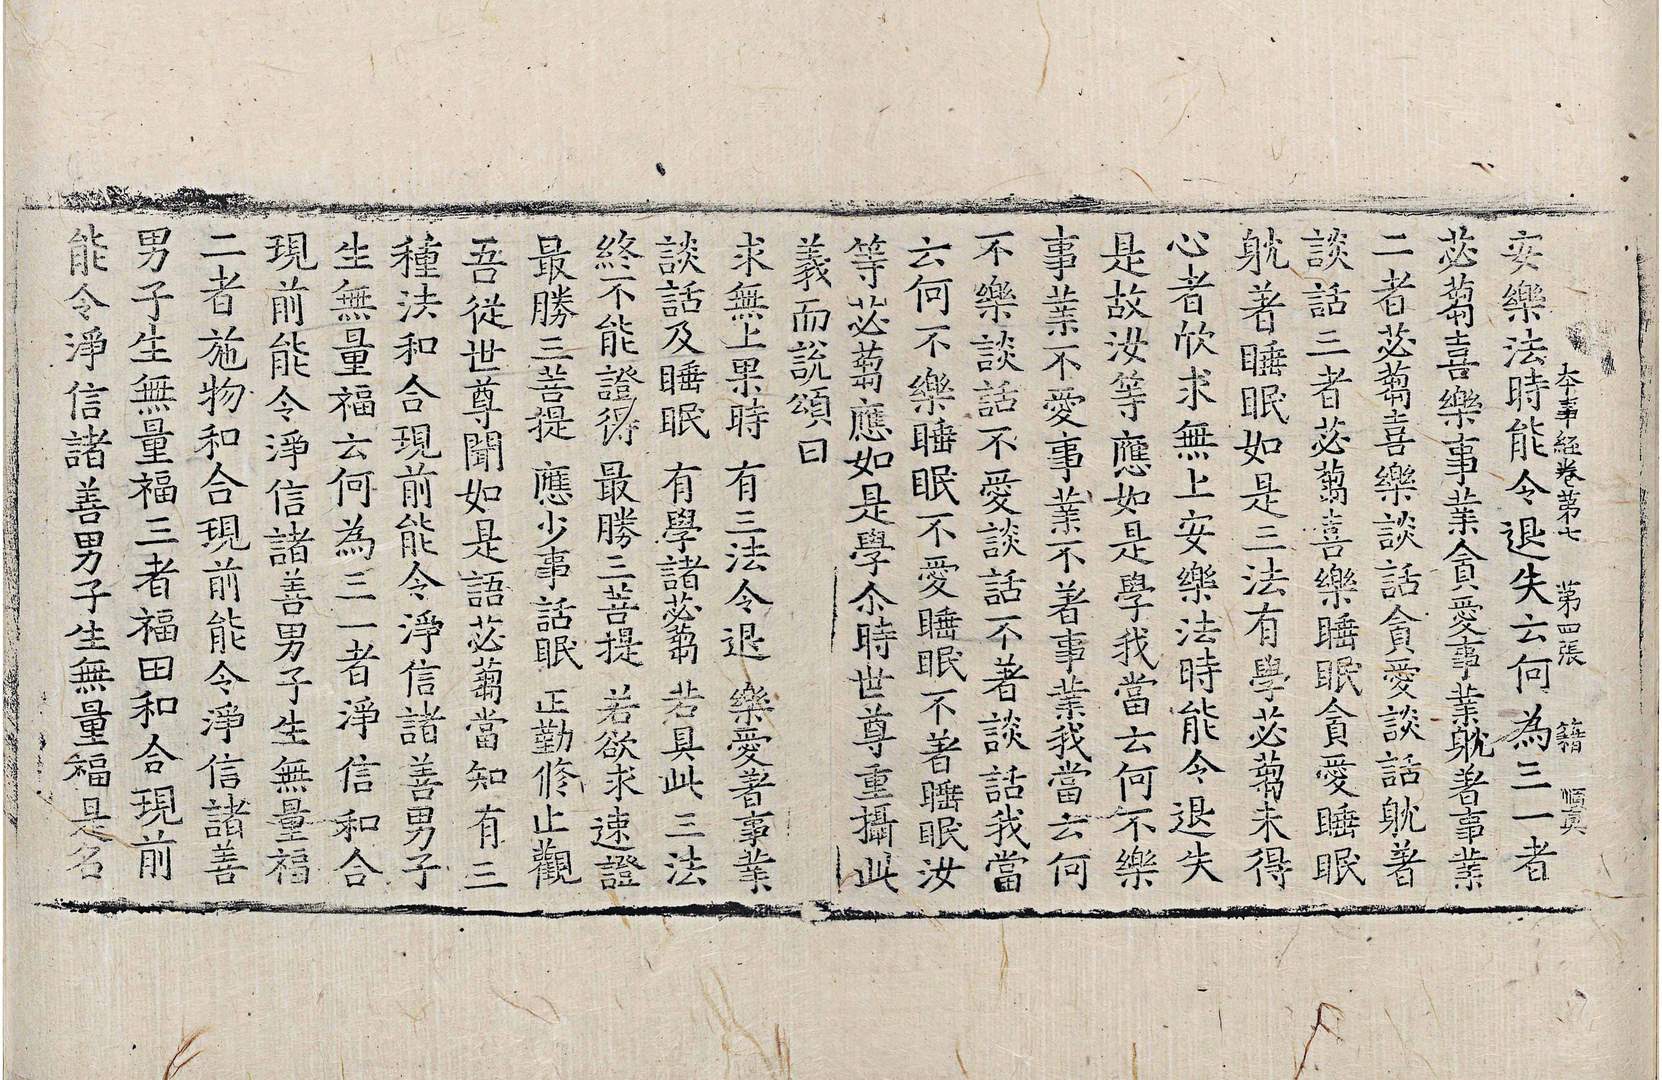 本事經卷第七 第四張 籍 順眞
安樂法時能令退失云何為三一者
苾蒭喜樂事業貪愛事業躭著事業
二者苾蒭喜樂談話貪愛談話躭著
談話三者苾蒭喜樂睡眠貪愛睡眠
躭著睡眠如是三法有學苾蒭未得
心者欣求無上安樂法時能令退失
是故汝等應如是學我當云何不樂
事業不愛事業不著事業我當云何
不樂談話不愛談話不著談話我當
云何不樂睡眠不愛睡眠不著睡眠汝
等苾蒭應如是學尒時世尊重攝此
義而說頌曰
求無上果時 有三法令退 樂愛著事業
談話及睡眠 有學諸苾蒭 若具此三法
終不能證得 最勝三菩提 若欲求速證
最勝三菩提 應少事話眠 正勤修止觀
吾從世尊聞如是語苾蒭當知有三
種法和合現前能令淨信諸善男子
生無量福云何為三一者淨信和合
現前能令淨信諸善男子生無量福
二者施物和合現前能令淨信諸善
男子生無量福三者福田和合現前
能令淨信諸善男子生無量福是名